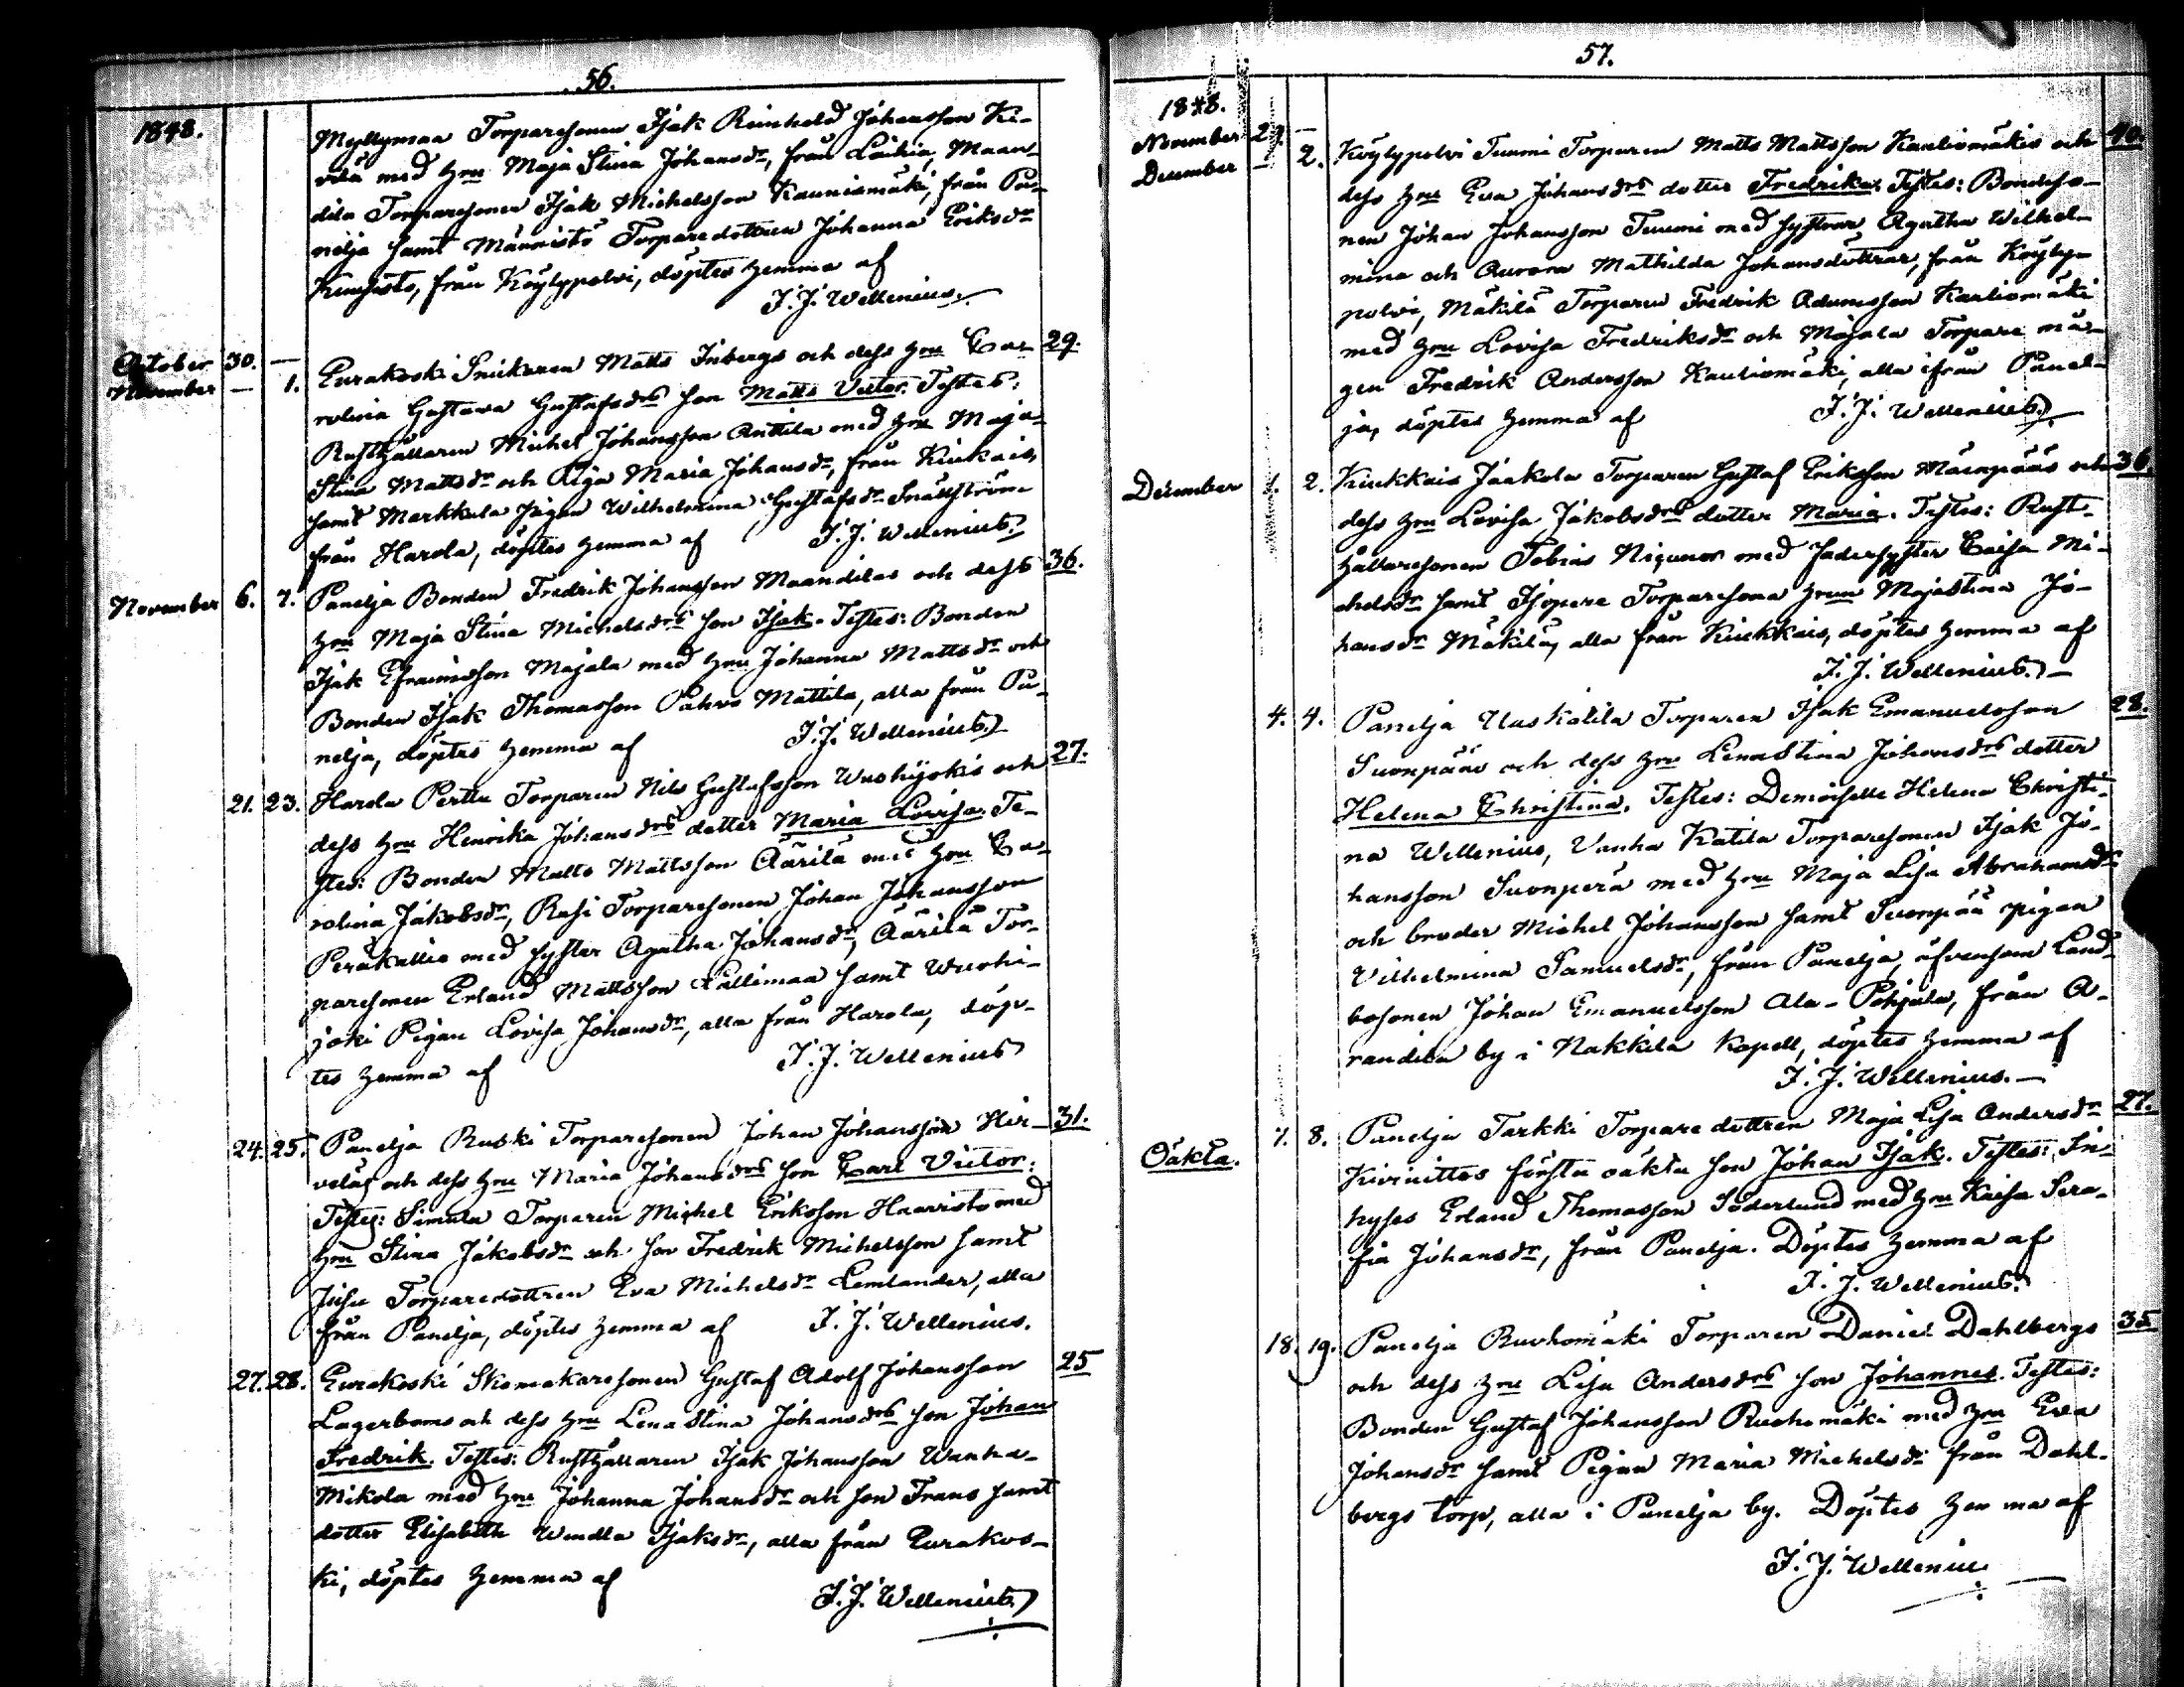 56.
1848.
Myllymaa Torparesonen Isak Reinhold Johansson Ki-
vilä med hru Maja Stina Johansdr, från Laihia, Maan-
dila Torparesonen Isak Michelsson Kauniomäki, från Pa-
nelja samt Männistö Torparedottren Johanna Eriksdr
från Köylypolvi, döptes hemma af
I. J. Wellenius.
October 30. — Eurakoski Snickaren Matts Inbergs och dess hru Ca- 29.
November — 1. rolina Gustava Gustafsdrs son Matts Victor. Testes:
Rusthållaren Michel Johansson Anttila med hru Maja
Stina Mattsdr och Piga Maria Johansdr, från Kiukais,
samt Markkula pigan Wilhelmina Gustafsdr Snällström
från Harola, döptes hemma af I. J. Wellenius.
November 6. 7. Panelja Bonden Fredrik Johansson Maandilas och dess 36.
hru Maja Stina Michelsdrs son Isak. Testes: Bonden
Isak Efraimsson Majala med hru Johanna Mattsdr och
Bonden Isak Thomasson Pahus Mattila, alla från Pa-
nelja, döptes hemma af I. J. Wellenius.
21. 23. Harola Perttu Torparen Nils Gustafsson Wuohijokis och 27.
dess hru Henrika Johansdrs dotter Maria Lovisa. Te-
stes: Bonden Matts Mattsson Äärilä med hru Ca-
rolina Jakobsdr, Rusi Torparesonen Johan Johansson
Peräkallio med syster Agatha Johansdr, Äärilä Tor-
paresonen Erland Mattsson Kallimaa samt Wuohi-
joki Pigan Lovisa Johansdr, alla från Harola, döp-
tes hemma af I. J. Wellenius
24. 25. Panelja Ruski Torparesonen Johan Johansson Hir- 31.
veläs och dess hru Maria Johansdrs son Carl Victor.
Testes: Simula Torparen Michel Eriksson Haavisto med
hru Stina Jakobsdr och son Fredrik Michelsson samt
Jusu Torparedottren Eva Michelsdr Lemlander, alla
från Panelja, döptes hemma af I. J. Wellenius.
27. 28. Eurakoski Skomakaresonen Gustaf Adolf Johansson 25
Lagerboms och dess hru Lena Stina Johansdrs son Johan
Fredrik. Testes: Rusthållaren Isak Johansson Wanha-
Mikola med hru Johanna Johansdr och son Frans samt
dotter Elisabeth Wendla Isaksdr, alla från Eurakos-
ki, döptes hemma af
I. J. Wellenius.
57.
1848.
November 29. —
December — 2. Köylypolvi Tuomi Torparen Matts Mattsson Kauliomäkis och 40.
dess hru Eva Johansdrs dotter Fredrika. Testes: Bondeso-
nen Johan Johansson Tuomi med systrar Agatha Wilhel-
mina och Aurora Mathilda Johansdöttrar, från Köyly-
polvi, Mäkilä Torparen Fredrik Adamsson Kauliomäki
med hru Lovisa Fredriksdr och Majala Torpare må-
gen Fredrik Andersson Kauliomäki, alla ifrån Panel-
ja, döptes hemma af I. J. Wellenius.
December 1. 2. Kiukkais Jaakola Torparen Gustaf Eriksson Mäenpääs och 36.
dess hru Lovisa Jakobsdrs dotter Maria. Testes: Rust-
hållaresonen Tobias Niquner med fadersyster Caisa Mi-
chelsdr samt Isopere Torparesona hrun Majastina Jo-
hansdr Mäkilä, alla från Kiukkais, döptes hemma af
I. J. Wellenius. —
4. 4. Panelja Uus Katila Torparen Isak Emanuelsson 28.
Suonpääs och dess hru Lena Stina Johansdrs dotter
Helena Christina. Testes: Demoiselle Helena Christi-
na Wellenius, Vanha Katila Torparesonen Isak Jo-
hansson Suonperä med hru Maja Lisa Abrahamsdr
och broder Michel Johansson samt Suonpää pigan
Vilhelmina Samuelsdr, från Panelja, äfvensom Land-
bosonen Johan Emanuelsson Ala-Pohjala, från A-
randila by i Nakkila Kapell, döptes hemma af
I. J. Wellenius. —
Oäkta. 7. 8. Panelja Tarkki Torpare dottren Maja Lisa Andersdr 27.
Kivinittos första oäkta son Johan Isak. Testes: In-
hyses Erland Thomasson Söderlund med hru Kaisa Sera-
fia Johansdr, från Panelja. Döptes hemma af
I. J. Wellenius.
18. 19. Panelja Ruohomäki Torparen Daniel Dahlbergs 35
och dess hru Lisa Andersdrs son Johannes. Testes:
Bonden Gustaf Johansson Ruohomäki med hru Eva
Johansdr samt Pigan Maria Michelsdr från Dahl-
bergs torp, alla i Panelja by. Döptes hemma af
I. J. Wellenius